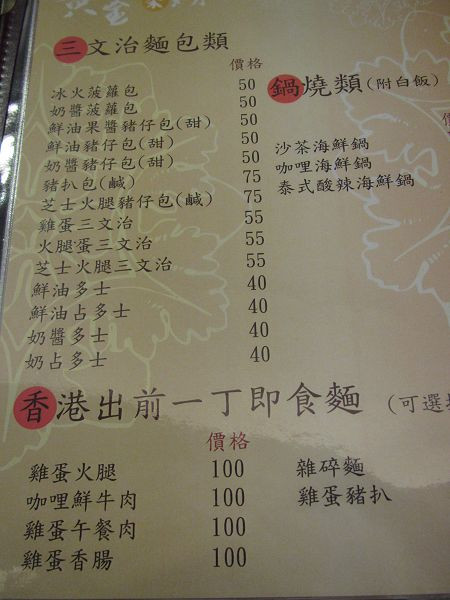 三文治麵包類
價格
冰火菠蘿包 50
奶醬菠蘿包 50
鮮油果醬豬仔包(甜) 50
鮮油豬仔包(甜) 50
奶醬豬仔包(甜) 50
豬扒包(鹹) 75
芝士火腿豬仔包(鹹) 75
雞蛋三文治 55
火腿蛋三文治 55
芝士火腿三文治 55
鮮油多士 40
鮮油占多士 40
奶醬多士 40
奶占多士 40
鍋燒類(附白飯)
沙茶海鮮鍋
咖哩海鮮鍋
泰式酸辣海鮮鍋
香港出前一丁即食麵 (可選
價格
雞蛋火腿 100
咖哩鮮牛肉 100
雞蛋午餐肉 100
雞蛋香腸 100
雜碎麵
雞蛋豬扒